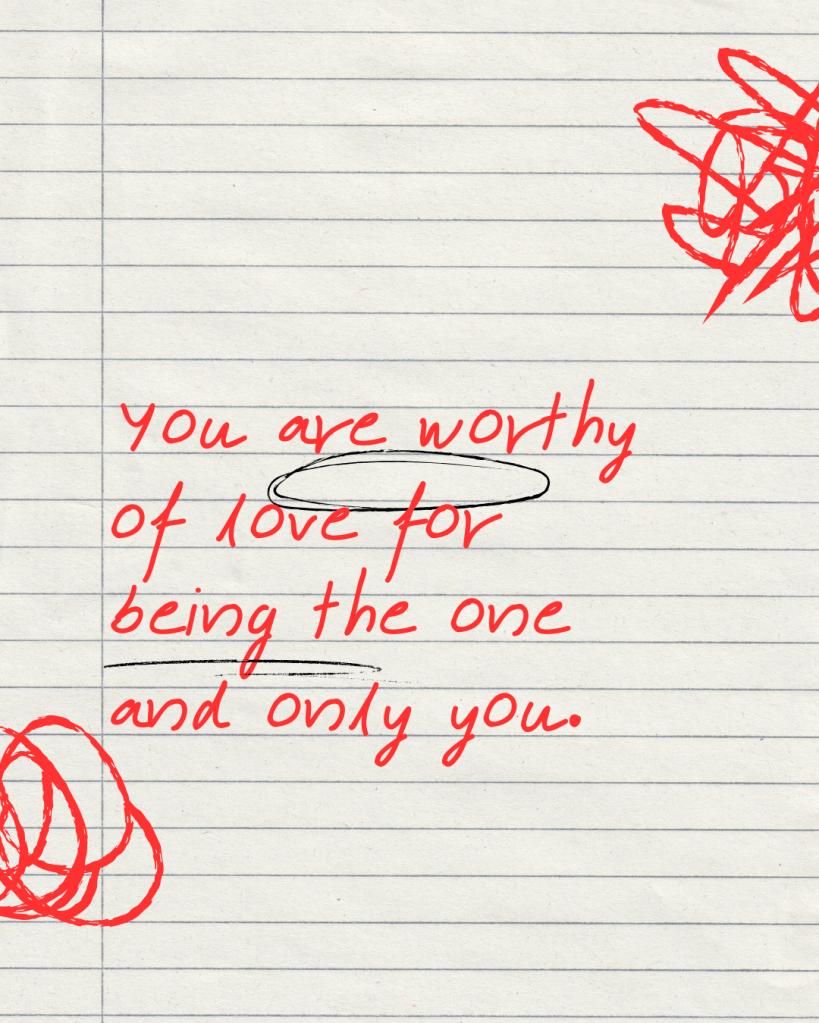 you are worthy
of love for
being the one
and only you.